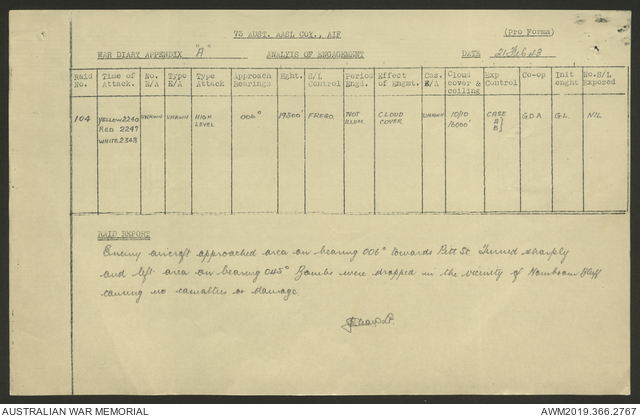 73 AUST. AASL COY., AIF (Pro Forma)
WAR DIARY APPENDIX "A" ANALYIS OF ENGAGEMENT DATE 21 Feb 43
Raid No. Time of Attack. No. E/A Type E/A Type Attack Approach Bearings Hght. S/L Control Period Engd. Effect of Engmt. Cas. E/A Cloud cover & ceiling Exp Control Co-op Init enght No.S/L Exposed
104 YELLOW 2240 RED 2247 WHITE 2323 UNKNWN UNKWN HIGH LEVEL 006° 19500' NOT ILLUM. CLOUD COVER UNKWN 10/10 16000' CASE A} B} GDA GL. NIL
RAID REPORT
Enemy aircraft approached area on bearing 006° towards Pett St. Turned sharply
and left area on bearing 045° Bombs were dropped in the vicinity of Bluff
causing no casualties or damage.
AUSTRALIAN WAR MEMORIAL AWM2019.366.2767